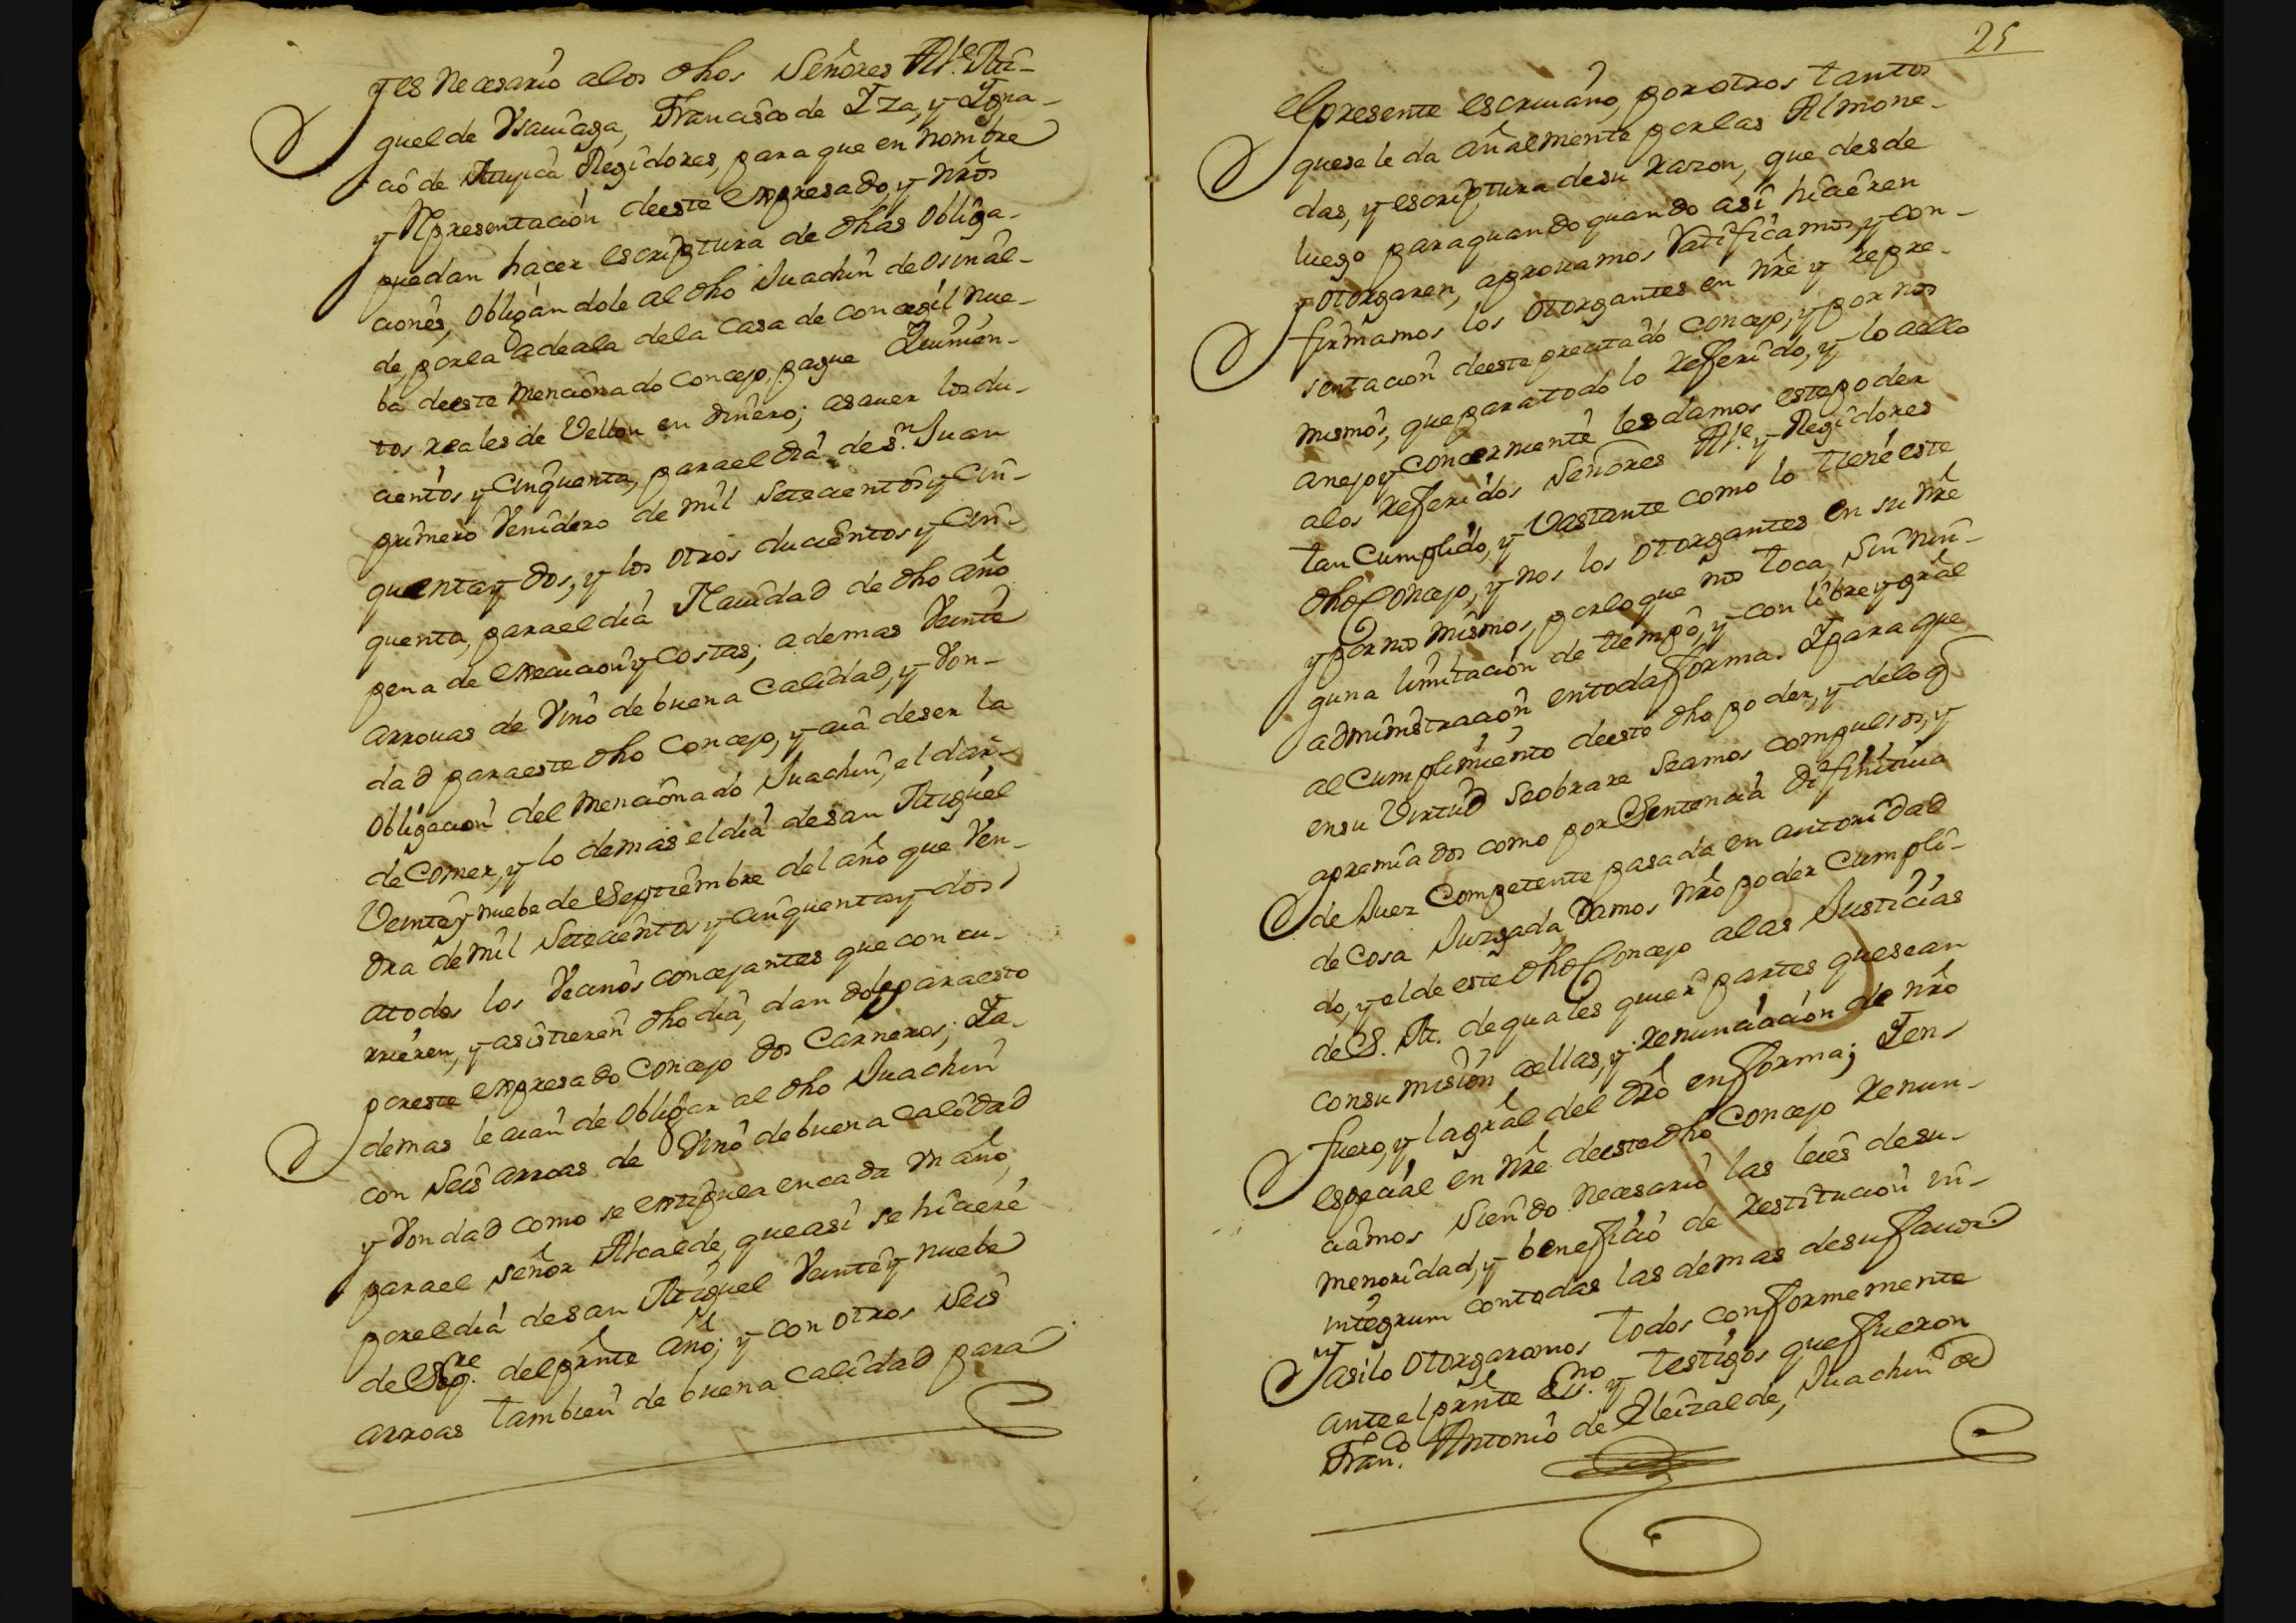 y es Necesario a los dhos Señores Al.e Mi-
guel de Vsauiaga, Francisco de Yza, y Ygna-
cio de Regidores, para que en Nombre
y Representación de este expresado, y Nr̃os
puedan hacer escriptura de dhas Obliga-
ciones, Obligandole al dho Juachin de Osinal-
de, por la adeala de la Casa de Concegil Nue-
ba de este Mencionado Concejo, pague Quinien-
tos reales de Vellon en dinero; asauer los du-
cientos y Cinquenta, para el dia de S.n Juan
primero Venidero de mil Setecientos y Cin-
quenta y dos, y los otros ducientos y Cin-
quenta, para el dia Nauidad de dho año
pena de execucion y costas; ademas Veinte
arrouas de Vino de buena Calidad, y Von-
dad para este dho Concejo, y aiâ de ser la
Obligacion del Mencionado Juachin, el dar
de Comer, y lo demas el dia de san Miguel
Veinte y nuebe de Septiembre del año que Ven-
dra de Mil Setecientos y Cinquenta y dos
a todos los Vecinos concejantes que concu-
rrieren, y asistieren dho dia, dandoles para esto
por este expresado Concejo dos Carneros; Ya-
demas le aian de Obligar al dho Juachin
con Seis arroas de Vino de buena calidad
y Vondad como se extipula en cada vn año,
para el Señor Alcalde, que asi se hiciere
por el dia de san Miguel Veinte y nuebe
de Sep.re del prñte año; y con otros Seis
arroas tambien de buena Calidad para
25
el presente escriuano, por otros tantos
que se le da añalmente por las Almone-
das, y escriptura de su razon, que desde
luego para quando quando asi hicieren
y otorgaren, aprouamos Ratificamos, y con-
firmamos los Otorgantes en Nr̃e y repre-
sentacion de este precitado Concejo, y por nos
mismos, que para todo lo referido, y lo a ello
anejo y Concerniente les damos este poder
a los referidos Señores Al.e y Regidores
tan Cumplido, y Vastante como lo tiene este
dho Concejo, y nos los Otorgantes en su Nr̃e
y por nos mismos, por lo que nos toca, Sin Nin-
guna limitación de tiempo, y con libre y grãl
administracion en toda forma. Y para que
al Cumplimiento de esto dho poder, y de lo q̃
en su Virtud se obrare Seamos compulsos, y
apremiados como por Sentencia difinitiua
de Juez Competente pasada en autoridad
de Cosa Juzgada, Damos Nr̃o poder Cumpli-
do, y el de este dho Concejo a las Justicias
de S. M. de quales quier partes que sean
con sumision a ellas, y renunciación de nr̃o
fuero, y la grãl del dr̃o en forma; Y en
especial en Nr̃e de este dho Concejo renun-
ciamos Siendo Necesario las leies de su
menoridad, y beneficio de restitucion in-
integrum con todas las demas de su fauor
Y asi lo Otorgaramos todos conformemente
ante el prñte ess.no y testigos que fueron
Fran.co Antonio de Eleizalde, Juachin de